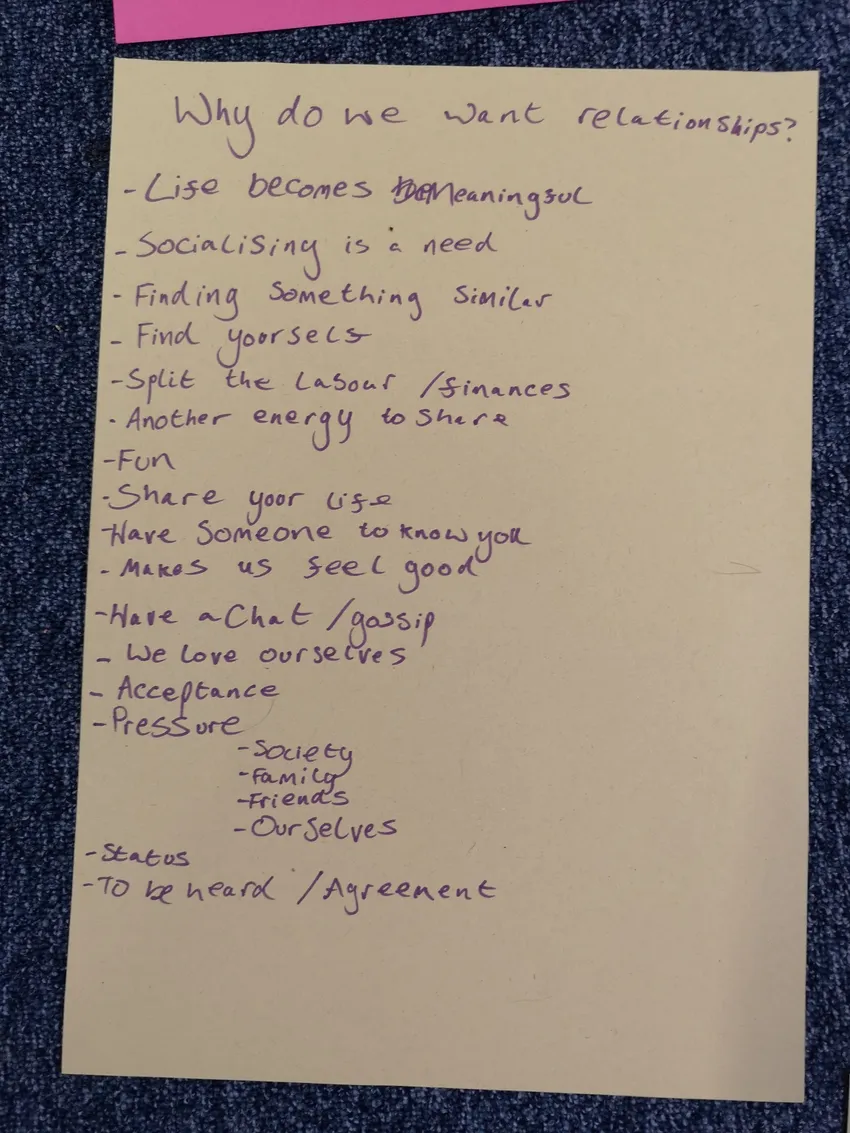 Why do we want relationships?
- Life becomes Meaningful
- Socialising is a need
- Finding something similar
- Find yourself
- Split the Labour / finances
- Another energy to share
- Fun
- Share your life
- Have someone to know you
- Makes us feel good
- Have a chat / gossip
- We love ourselves
- Acceptance
- Pressure
- Society
- Family
- Friends
- Ourselves
- Status
- To be heard / Agreement